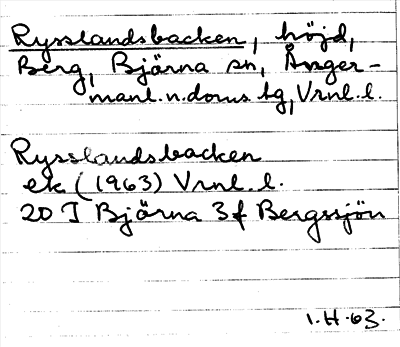 Rysslandsbacken, höjd,
Berg, Bjärna sn, Ånger-
manl.n.doms lg, Vrnl.l.
Rysslandsbacken
ek (1963) Vrnl.l.
20 I Bjärna 3f Bergssjön
1.H.63.